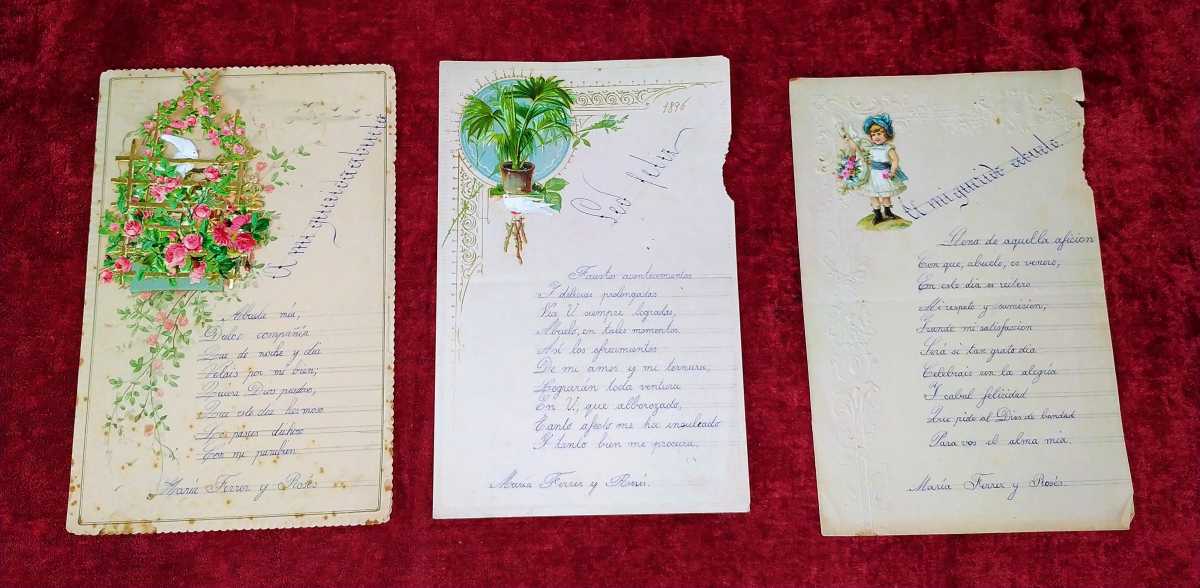 A mi querida abuela
Abuela mía,
Dulce compañía
Que de noche y día
Veláis por mi bien;
Quiera Dios piadoso,
Que este día hermoso
Los paséis dichoso
Con mi parabién
María Ferrer y Rosés
1896
Sed feliz
Faustos acontecimientos
Y delicias prolongadas
Vea U. siempre logradas,
Abuelo, en tales momentos.
Así los ofrecimientos
De mi amor y mi ternura,
Lograrán toda ventura
En U, que alborozado,
Tanto afecto me ha inculcado
Y tanto bien me procura.
María Ferrer y Rosés.
A mi querido abuelo
Llena de aquella afición
Con que, abuelo, os venero,
En este día os reitero
Mi respeto y sumisión,
Grande mi satisfacción
Será si tan grato día
Celebráis con la alegría
Y cabal felicidad
Que pide al Dios de bondad
Para vos el alma mía.
María Ferrer y Rosés.